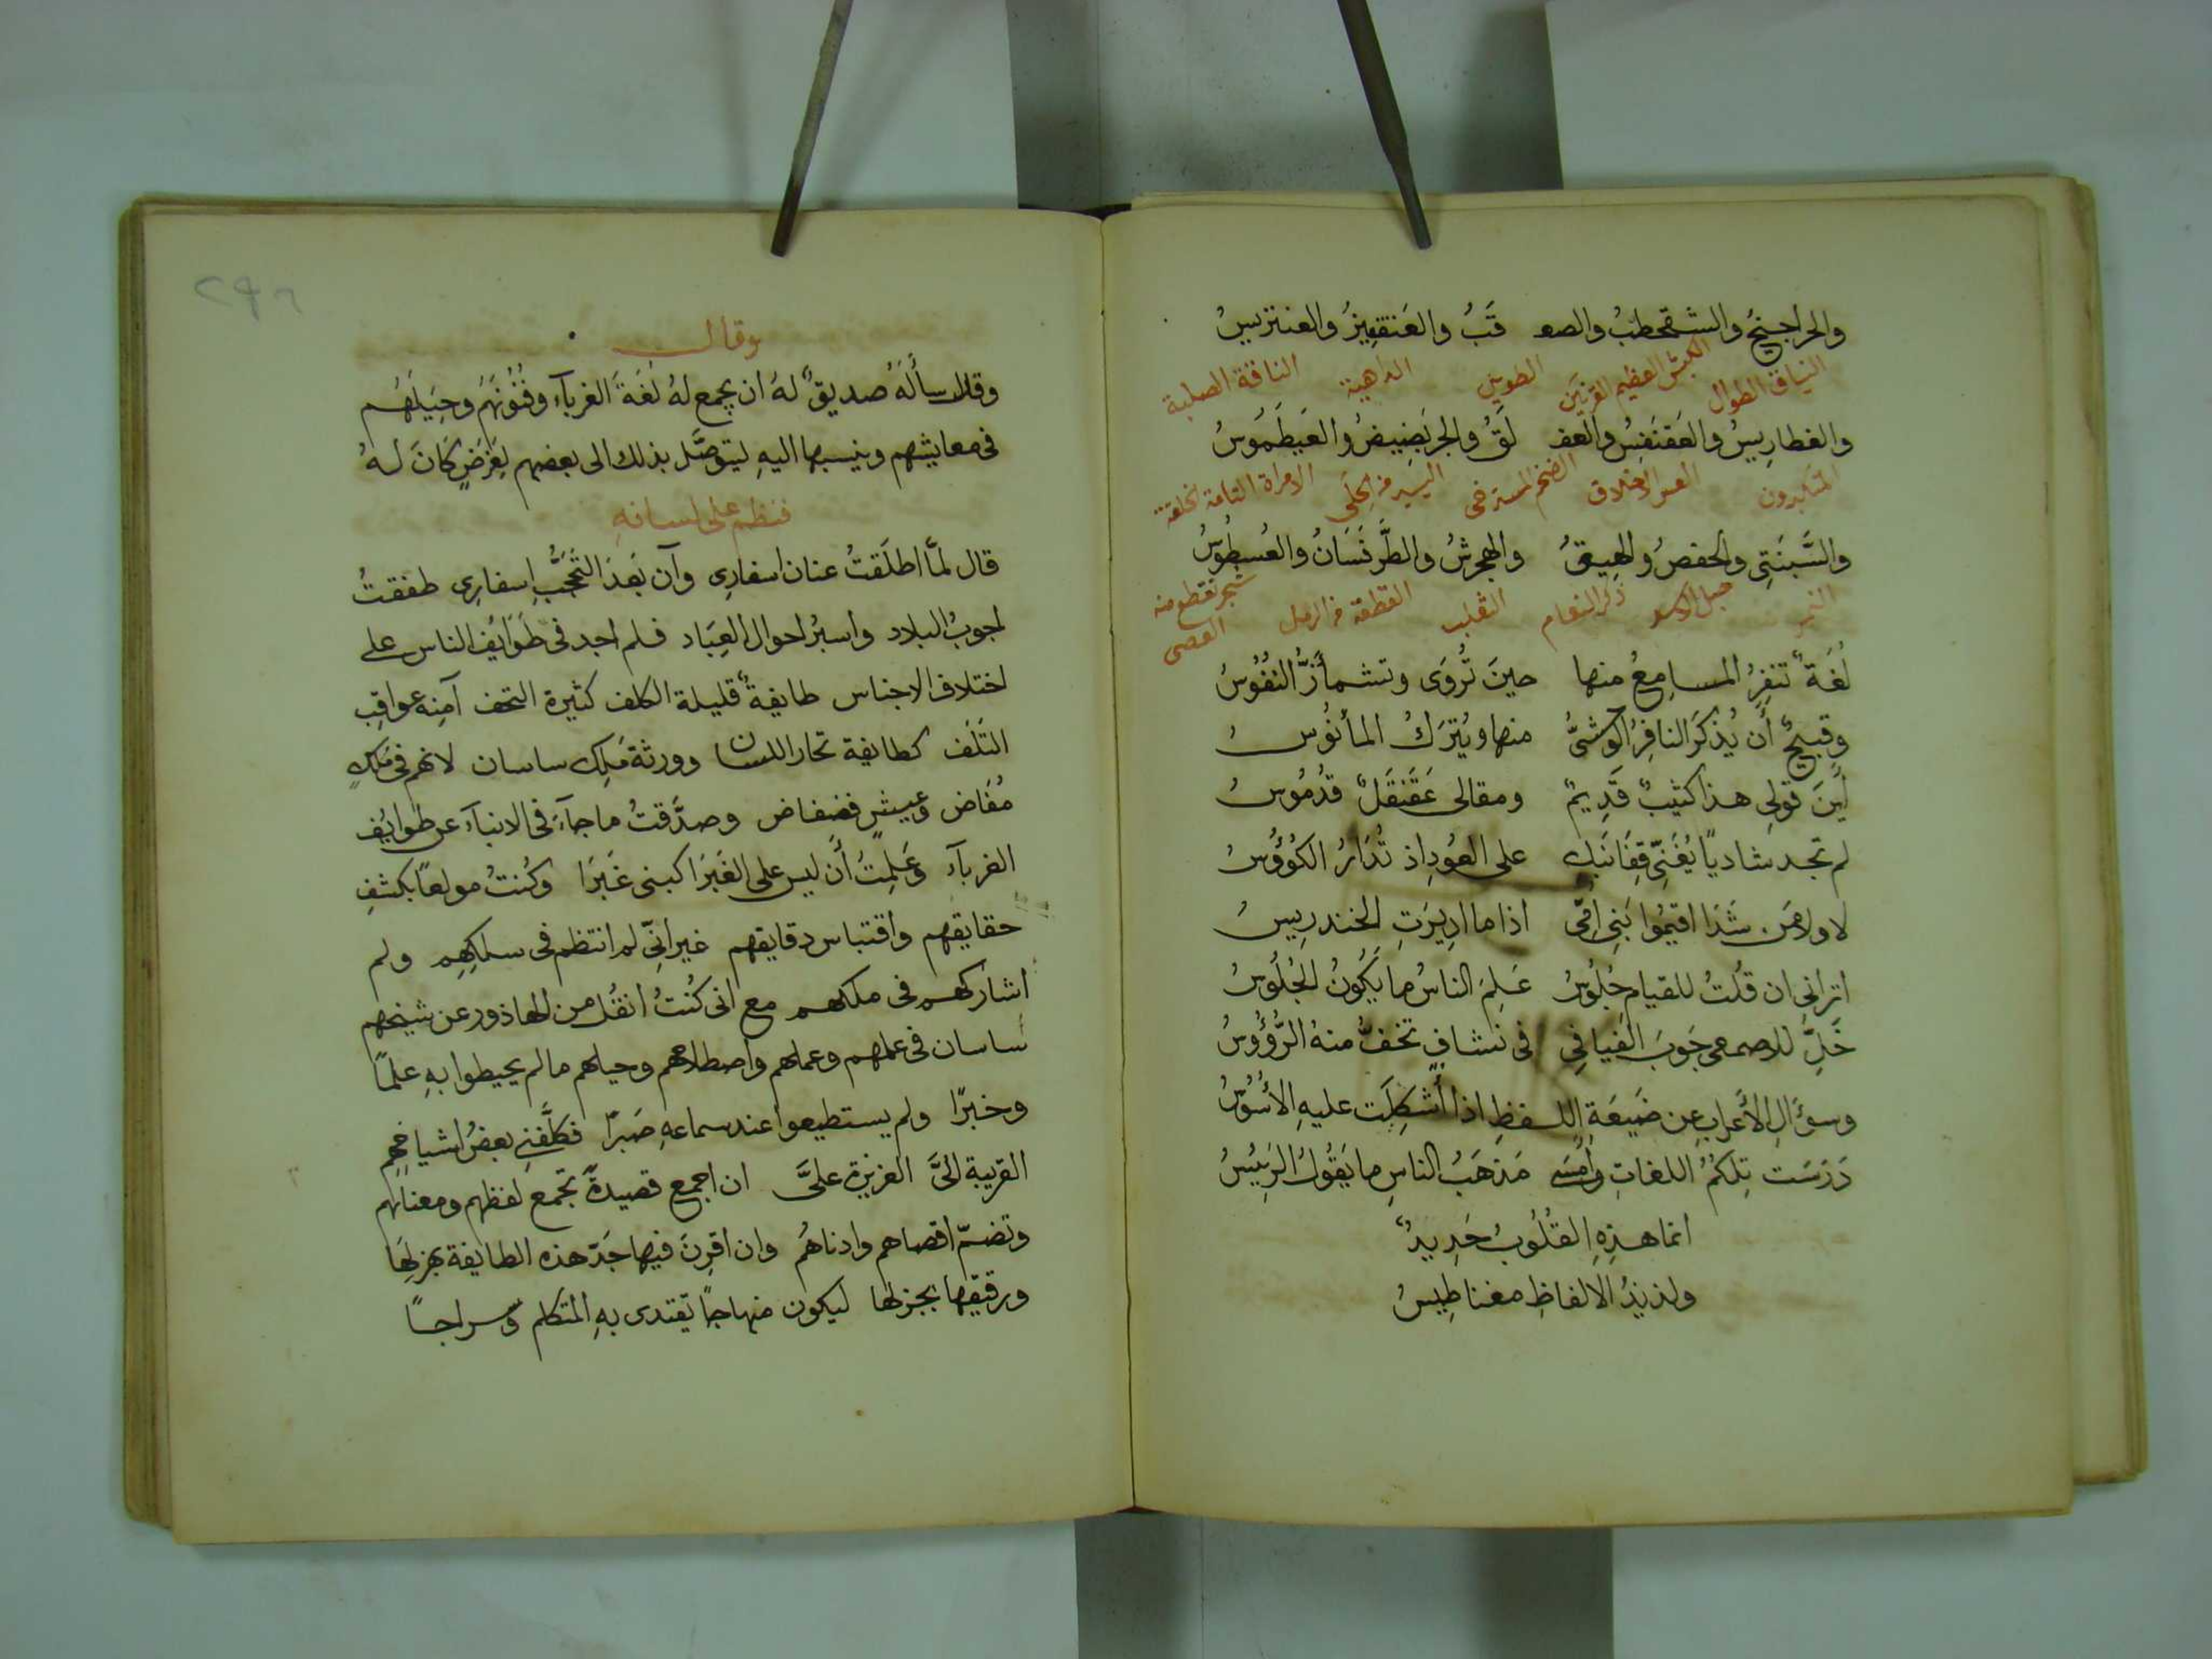 والحراجيخ والشقحطب والصعـ قَبُ والعَنقفيزُ والعنتريسُ
النياق الطوال الكبش العظيم القرنين الطويل الداهية الناقة الصلبة
والغطارِيسُ والعَقَنفَسُ والعفـ لَقُ والجربَصِيصُ والعَيطَمُوسُ
المتكبرون العسر الاخلاق الضخم المسترخى اليسير من الحلى الامراة التامة الخلقة
والسَّبَنتى والحفصُ والهِيقُ والهجرشُ والطَّرفَسَانُ والعُسطُوسُ
النمر ذكر النعام الثعلب القطعة من الرمل شجر تقطع منه العصى
لُغَةٌ تنفِرُ المسامِعُ منها حينَ تُروَى وتشمأزُّ النُفُوسُ
وقبيحٌ أن يُذكَرَ النافِرُ الوحشىُّ منها ويُترَكُ المأنوُسُ
أينَ قولى هذا كثيبٌ قَدِيمٌ ومقالى عَقَنقَلٌ قدُمُوسُ
لم تجد شاديًا يُغَنِّى قِفَانَبكِ على العُودِ اذ تُدَارُ الكُؤُوسُ
لا ولا مَن شَدَا اقيمُوا بَنِى اُمِّى اذا ما اديرَتِ الخندرِيسُ
اترانى ان قُلتُ للقيامِ جُلُوسٌ عَلِمَ الناسُ ما يَكُونُ الجُلُوسُ
خَلِّ للاصمعى جَوبَ الفيافِى فى نشافٍ تخفُّ منهُ الرُّؤُوسُ
وسؤَالِ الأَعرابِ عن ضَيعَةِ اللفظِ اذا أُشكِلَت عليهِ الأُسُوسُ
دَرَسَت تِلكُمُ اللغاتِ وأمسَى مَذهَبُ الناسِ ما يَقُولُ الرَئِيسُ
انما هذِهِ القُلُوبُ حَدِيدٌ
ولذيذُ الالفاظِ مغناطِيسُ
٢٩٦
وقال
وقد سألَهُ صديقٌ لهُ ان يجمع لهُ لُغَةَ الغربآءِ وفُنُونَهُم وحِيَلَهُم
فى معايشهم وينسبها اليهِ ليتوصَّل بذلك الى بعضهم لِغَرَضٍ كَانَ لهُ
فنظم على لسانهِ
قال لمّا اطلَقتُ عنان اسفارِى وآن بَعدَ التَحَجُّبِ اِسفارِى طفقتُ
اجوبُ البلاد واسبرُ احوال العِبَاد فلم اجد فى طَوَايُف الناس على
اختلاف الاجناس طايفةً قليلة الكلف كثيرة التحف آمِنه عواقِب
التَلَف كطايفة تحار اللسان وورثة مَلِك ساسان لانهم فى مُلكٍ
مُفَاض وعيشٍ فضفاض وصدَّقتُ ما جآءَ فى الانبآءِ عن طوايُف
الغربآءِ وَعَلِمتُ أن ليس على الغَبرَا كبنى غَبرَا وكُنتُ مولعًا بكشفِ
حقايقهم واقتباس دقايقهم غير انّى لم انتظم فى سلكِهِم ولم
اشاركهم فى ملكهم مع انى كُنتُ انقُل من الهاذور عن شيخهم
ساسان فى علمهم وعملهم واصطلاحهم وحيلهم ما لم يحيطوا بهِ علمًا
وخبرًا ولم يستطيعوا عند سماعهِ صَبرًا فكلَّفنى بعضُ اشياخهِم
القريبة الىَّ العزيزة علىَّ ان اجمع قصيدةً تجمع لفظهم ومعناهم
وتضمّ اقصاهم وادناهُم وان اقرِنَ فيها جَدّ هذه الطايفة بهزلِهَا
ورقيقها بجزلها ليكون منهاجًا يقتدى بهِ المتكلم وسراجًا